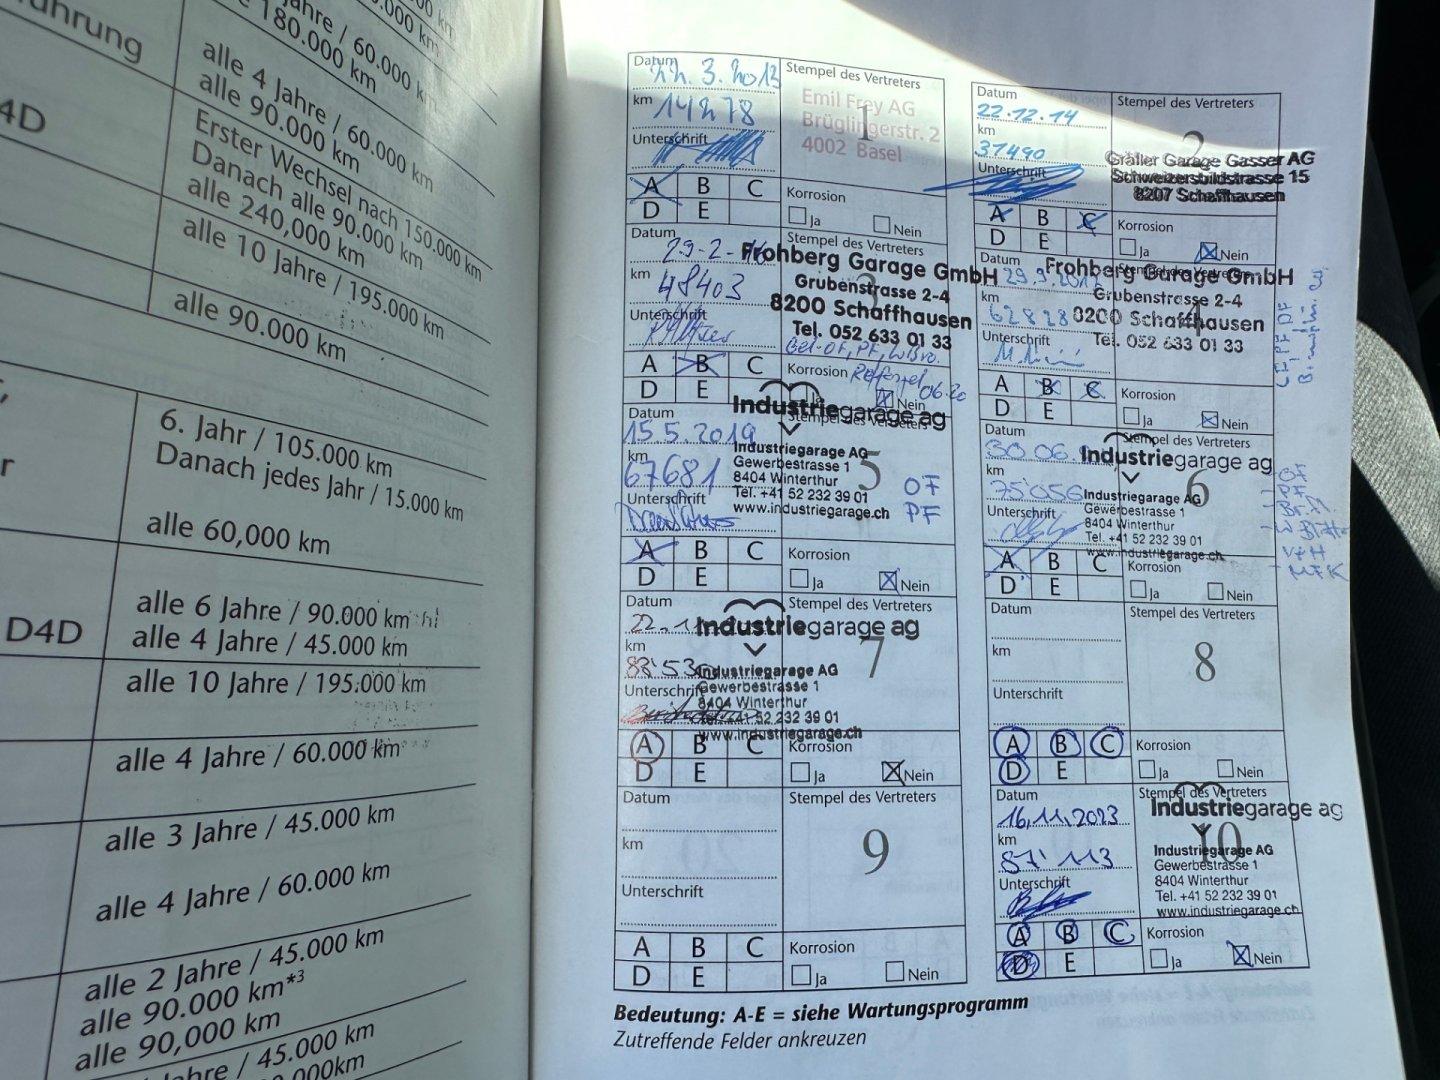 ührung
000 km
Jahre / 60.000 km
180.000 km
alle 4 Jahre / 60.000 km
alle 90.000 km
4D
Erster Wechsel nach 150.000 km
Danach alle 90.000 km
alle 240,000 km
alle 10 Jahre / 195.000 km
alle 90.000 km
6. Jahr / 105.000 km
Danach jedes Jahr / 15.000 km
r
alle 60,000 km
alle 6 Jahre / 90.000 km
D4D
alle 4 Jahre / 45.000 km
alle 10 Jahre / 195.000 km
alle 4 Jahre / 60.000 km
alle 3 Jahre / 45.000 km
alle 4 Jahre / 60.000 km
alle 2 Jahre / 45.000 km
alle 90.000 km*3
alle 90,000 km
Jahre / 45.000 km
000km
Datum
22. 3. 2013
km
14278
Unterschrift
Stempel des Vertreters
1
Emil Frey AG
Brüglingerstr. 2
4002 Basel
A B C
D E
Korrosion
Ja Nein
Datum
22.12.14
km
37490
Unterschrift
Stempel des Vertreters
2
Gräller Garage Gasser AG
Schweizersbildstrasse 15
8207 Schaffhausen
A B C
D E
Korrosion
Ja Nein
Datum
29-2-16
km
48403
Unterschrift
Stempel des Vertreters
3
Frohberg Garage GmbH
Grubenstrasse 2-4
8200 Schaffhausen
Tel. 052 633 01 33
A B C
D E
Korrosion
06.20
Ja Nein
Datum
29.9.2017
km
62828
Unterschrift
Stempel des Vertreters
4
Frohberg Garage GmbH
Grubenstrasse 2-4
8200 Schaffhausen
Tel. 052 633 01 33
A B C
D E
Korrosion
Ja Nein
Datum
15 5.2019
km
67681
Unterschrift
Stempel des Vertreters
5
Industriegarage ag
Industriegarage AG
Gewerbestrasse 1
8404 Winterthur
Tel. +41 52 232 39 01
www.industriegarage.ch
OF
PF
A B C
D E
Korrosion
Ja Nein
Datum
30 06.
km
75'056
Unterschrift
Stempel des Vertreters
6
Industriegarage ag
Industriegarage AG
Gewerbestrasse 1
8404 Winterthur
Tel. +41 52 232 39 01
www.industriegarage.ch
- OF
- PF
- MFK
A B C
D E
Korrosion
Ja Nein
Datum
22.
km
Unterschrift
Stempel des Vertreters
7
Industriegarage ag
Industriegarage AG
Gewerbestrasse 1
8404 Winterthur
Tel. +41 52 232 39 01
www.industriegarage.ch
A B C
D E
Korrosion
Ja Nein
Datum
km
Unterschrift
Stempel des Vertreters
8
A B C
D E
Korrosion
Ja Nein
Datum
km
Unterschrift
Stempel des Vertreters
9
A B C
D E
Korrosion
Ja Nein
Datum
16.11.2023
km
87'113
Unterschrift
Stempel des Vertreters
10
Industriegarage ag
Industriegarage AG
Gewerbestrasse 1
8404 Winterthur
Tel. +41 52 232 39 01
www.industriegarage.ch
A B C
D E
Korrosion
Ja Nein
Bedeutung: A-E = siehe Wartungsprogramm
Zutreffende Felder ankreuzen